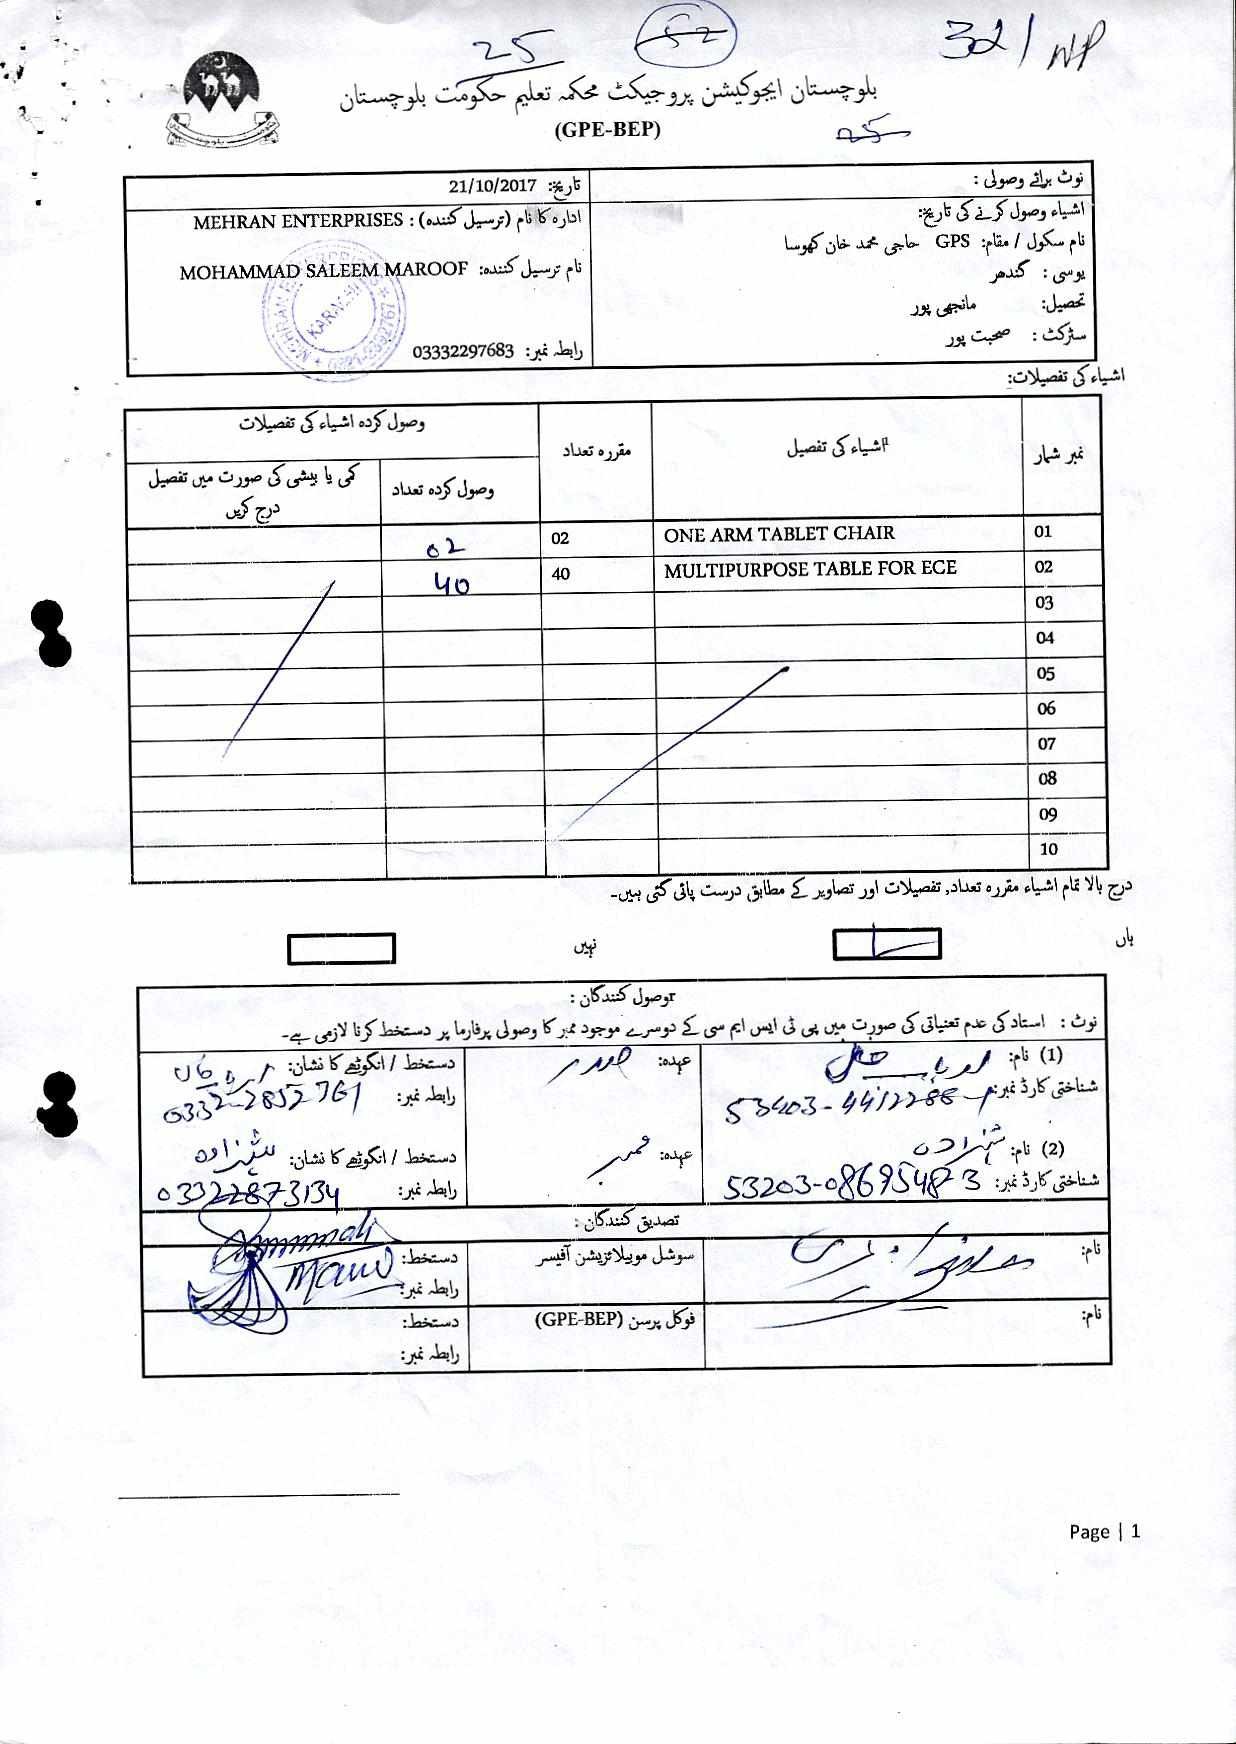 25
52
321/NP
بلوچستان ایجوکیشن پروجیکٹ محکمہ تعلیم حکومت بلوچستان
(GPE-BEP)
25
نوٹ برائے وصولی :
تاریخ: 21/10/2017
اشیاء وصول کرنے کی تاریخ:
ادارہ کا نام (ترسیل کنندہ) : MEHRAN ENTERPRISES
نام سکول / مقام: GPS حاجی محمد خان کھوسا
نام ترسیل کنندہ: MOHAMMAD SALEEM MAROOF
یوسی : گندھر
تحصیل: مانجھی پور
سٹرکٹ : صحبت پور
رابطہ نمبر: 03332297683
اشیاء کی تفصیلات:
نمبر شمار اشیاء کی تفصیل مقررہ تعداد وصول کردہ اشیاء کی تفصیلات
وصول کردہ تعداد کمی یا بیشی کی صورت میں تفصیل درج کریں
01 ONE ARM TABLET CHAIR 02 02
02 MULTIPURPOSE TABLE FOR ECE 40 40
03
04
05
06
07
08
09
10
درج بالا تمام اشیاء مقررہ تعداد, تفصیلات اور تصاویر کے مطابق درست پائی گئی ہیں۔
ہاں نہیں
وصول کنندگان :
نوٹ : استاد کی عدم تعنیاتی کی صورت میں پی ٹی ایس ایم سی کے دوسرے موجود ممبر کا وصولی پرفارما پر دستخط کرنا لازمی ہے۔
(1) نام: عہدہ: صدر دستخط / انگوٹھے کا نشان:
شناختی کارڈ نمبر: رابطہ نمبر: 0332-2852761
(2) نام: شہزادہ عہدہ: ممبر دستخط / انگوٹھے کا نشان: شہزادہ
شناختی کارڈ نمبر: 53203-0869548-3 رابطہ نمبر: 03322873134
تصدیق کنندگان :
نام: سوشل موبیلائزیشن آفیسر دستخط:
رابطہ نمبر:
نام: فوکل پرسن (GPE-BEP) دستخط:
رابطہ نمبر:
Page | 1